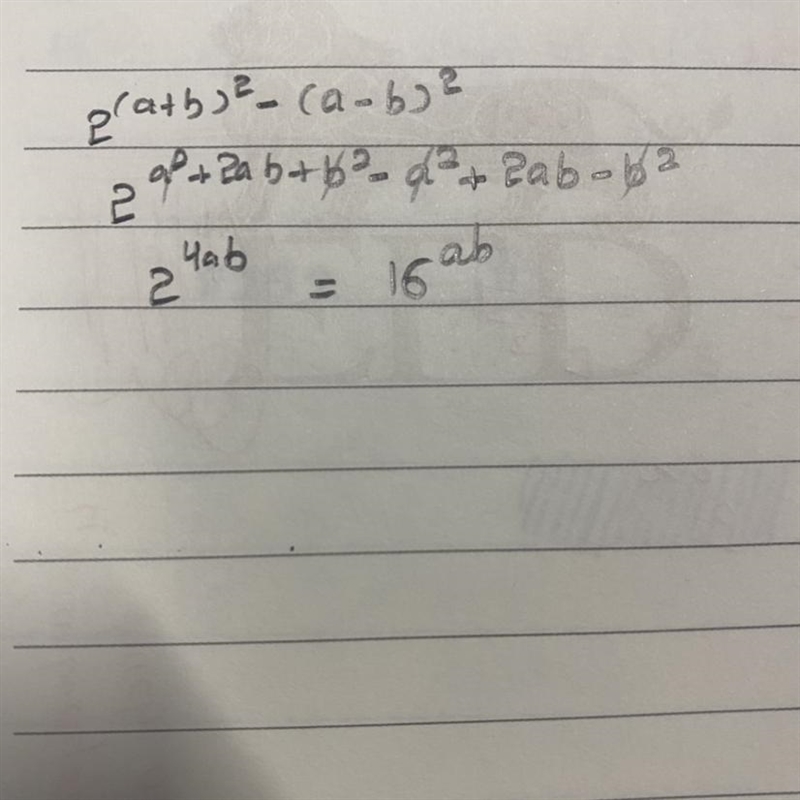 2^(a+b)²-(a-b)²
2^a²+2ab+b²-a²+2ab-b²
2^4ab = 16^ab